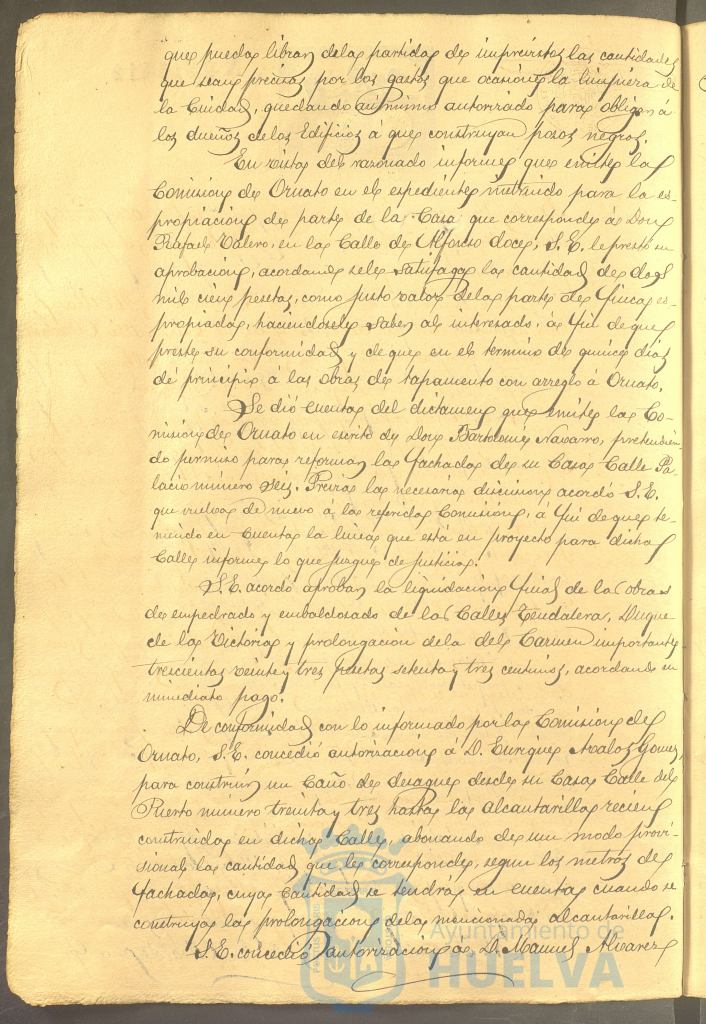 que pueda librar de la partida de imprevistos las cantidades
que sean precisas por los gastos que ocasione la limpieza de
la Ciudad, quedando asimismo autorizado para obligar á
los dueños de los Edificios á que construyan pozos negros.
En vista del razonado informe que emite la
Comision de Ornato en el espediente instruido para la es-
propiacion de parte de la Casa que corresponde á Don
Rafael Valero, en la Calle de Alfonso doce, S. E. le prestó su
aprobacion, acordando se le satisfaga la cantidad de dos
mil cien pesetas, como justo valor de la parte de finca es-
propiada, haciendosele saber al interesado, á fin de que
preste su conformidad y de que en el termino de quince dias
dé principio á las obras de tapamento con arreglo á Ornato.
Se dió cuenta del dictamen que emite la Co-
mision de Ornato en escrito de Don Bartolomé Navarro, pretendien-
do permiso para reformar la fachada de su Casa Calle Pa-
lacio número seis. Previa la necesaria discusion acordó S. E.
que vuelva de nuevo á la referida Comision, á fin de que te-
niendo en cuenta la linea que está en proyecto para dicha
Calle informe lo que juzgue de justicia.
S. E. acordó aprobar la liquidacion final de las obras
de empedrado y embaldosado de las Calles Tendalera, Duque
de la Victoria y prolongacion de la del Carmen importante
trescientas veinte y tres pesetas setenta y tres centimos, acordando su
inmediato pago.
De conformidad con lo informado por la Comision de
Ornato, S. E. concedió autorizacion á D. Enrique Avalos Gomez,
para construir un Caño de desague desde su Casa Calle del
Puerto número treinta y tres hasta la alcantarilla recien
construida en dicha Calle, abonando de un modo provi-
sional la cantidad que le corresponde, segun los metros de
fachada, cuya cantidad se tendrá en cuenta cuando se
construya la prolongacion de la mencionada alcantarilla.
S. E. concedió autorizacion á D. Manuel Alvarez
Ayuntamiento de
HUELVA